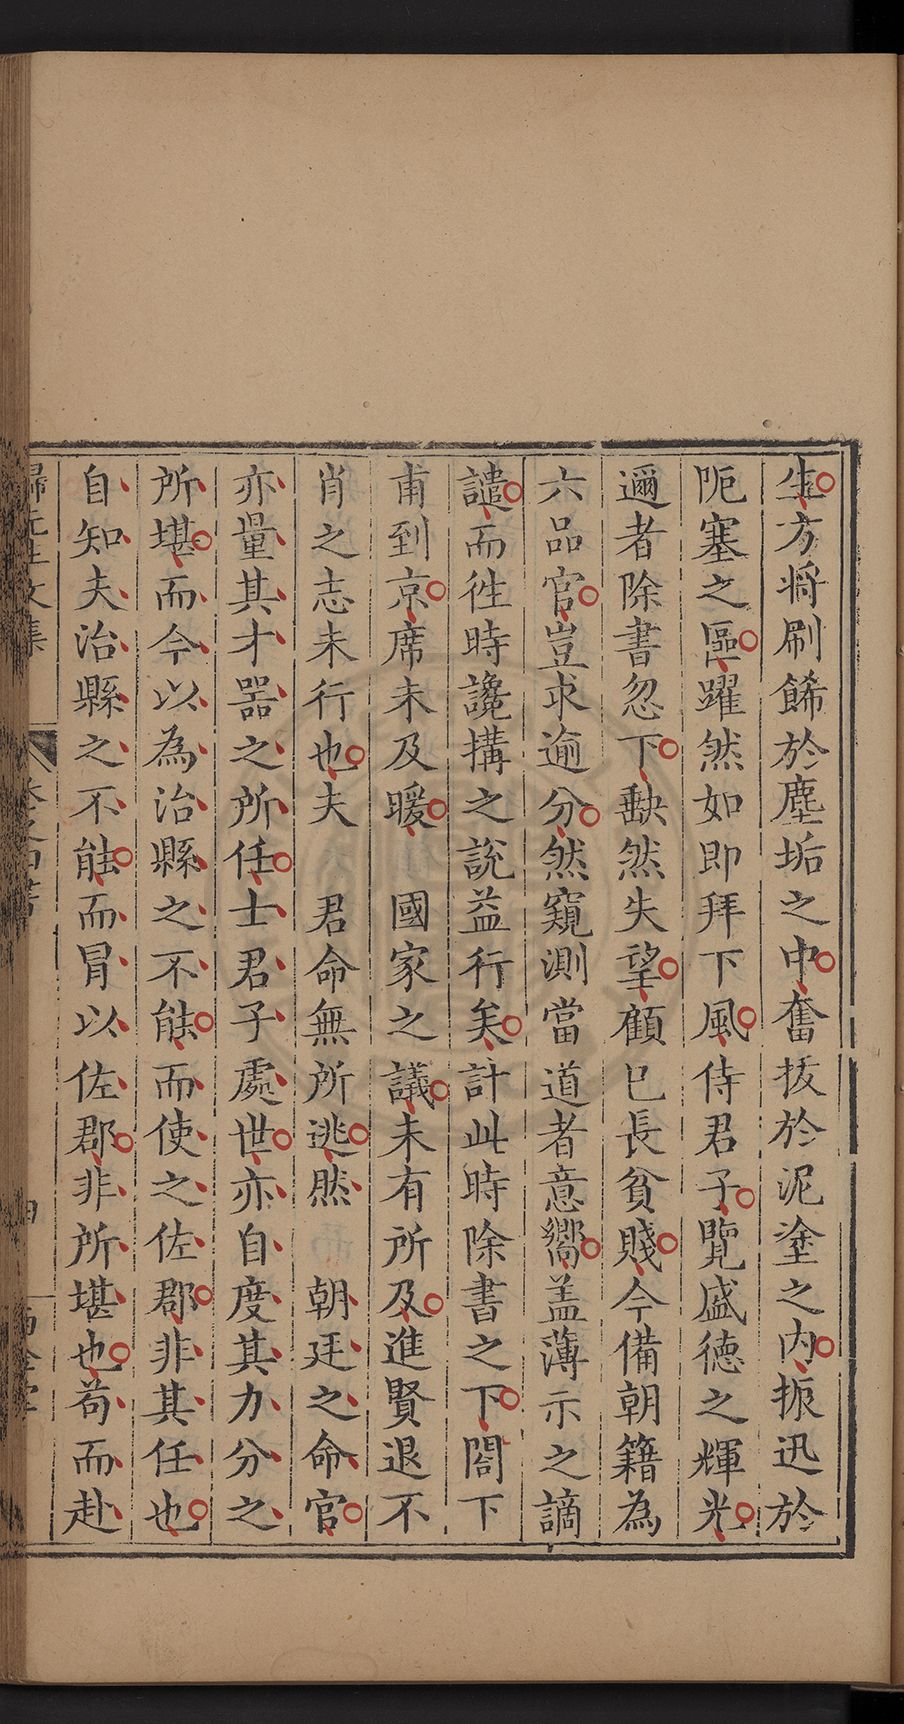 生方將刷餙於塵垢之中奮拔於泥塗之内振迅於
阨塞之區躍然如即拜下風侍君子覽盛德之輝光
邇者除書忽下缺然失望顧已長貧賤今備朝籍為
六品官豈求逾分然窺測當道者意嚮盖薄示之謫
譴而徃時讒搆之說益行矣計此時除書之下閣下
甫到京席未及暖國家之議未有所及進賢退不
肖之志未行也夫君命無所逃然朝廷之命官
亦量其才噐之所任士君子處世亦自度其力分之
所堪而今以為治縣之不能而使之佐郡非其任也
自知夫治縣之不能而冒以佐郡非所堪也苟而赴